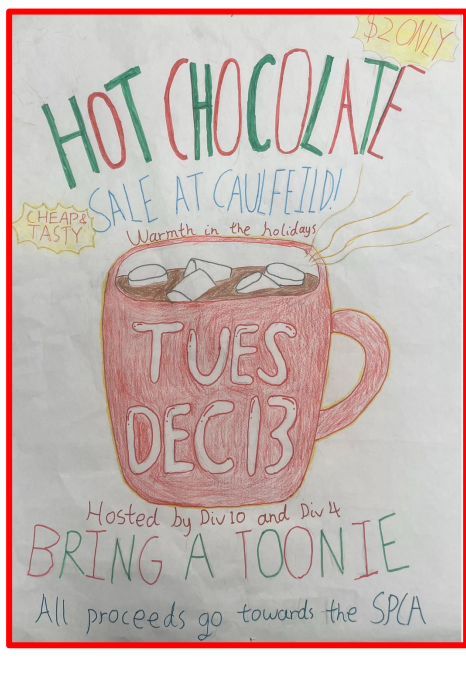 $2 ONLY
HOT CHOCOLATE
SALE AT CAULFEILD!
CHEAP &
TASTY
Warmth in the holidays
TUES
DEC 13
Hosted by Div 10 and Div 4
BRING A TOONIE
All proceeds go towards the SPCA